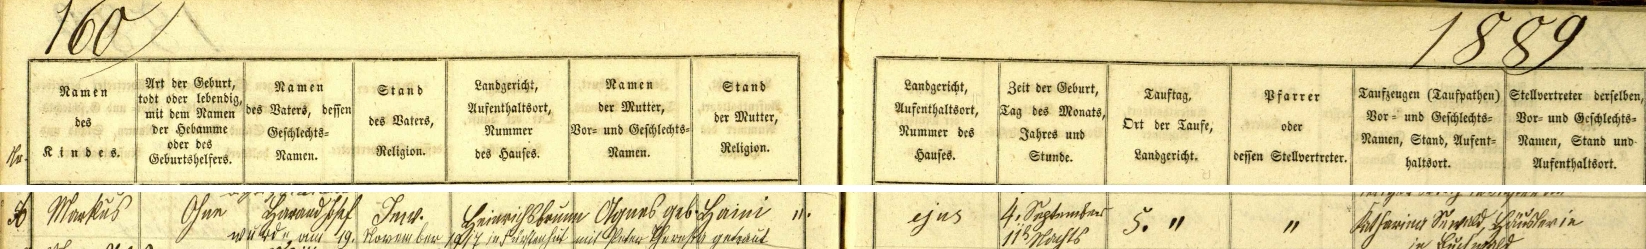 160
1889
No.
Namen
des
Kindes.
Art der Geburt,
todt oder lebendig,
mit dem Namen
der Hebamme
oder des
Geburtshelfers.
Namen
des Vaters, dessen
Geschlechts-
Namen.
Stand
des Vaters,
Religion.
Landgericht,
Aufenthaltsort,
Nummer
des Hauses.
Namen
der Mutter,
Vor- und Geschlechts-
Namen.
Stand
der Mutter,
Religion.
Landgericht,
Aufenthaltsort,
Nummer des
Hauses.
Zeit der Geburt,
Tag des Monats,
Jahres und
Stunde.
Tauftag,
Ort der Taufe,
Landgericht.
Pfarrer
oder
dessen Stellvertreter.
Taufzeugen (Taufpathen)
Vor- und Geschlechts-
Namen, Stand, Aufent-
haltsort.
Stellvertreter derselben,
Vor- und Geschlechts-
Namen, Stand und
Aufenthaltsort.
Markus Ohne Josef Inw. Heinrichsbrunn Agnes geb. Haini ". ejus 4. September 5. " " Katharina Häuslerin
wurde am 19. November in Fürstenhut mit getraut 11h Nachts in Buchwald